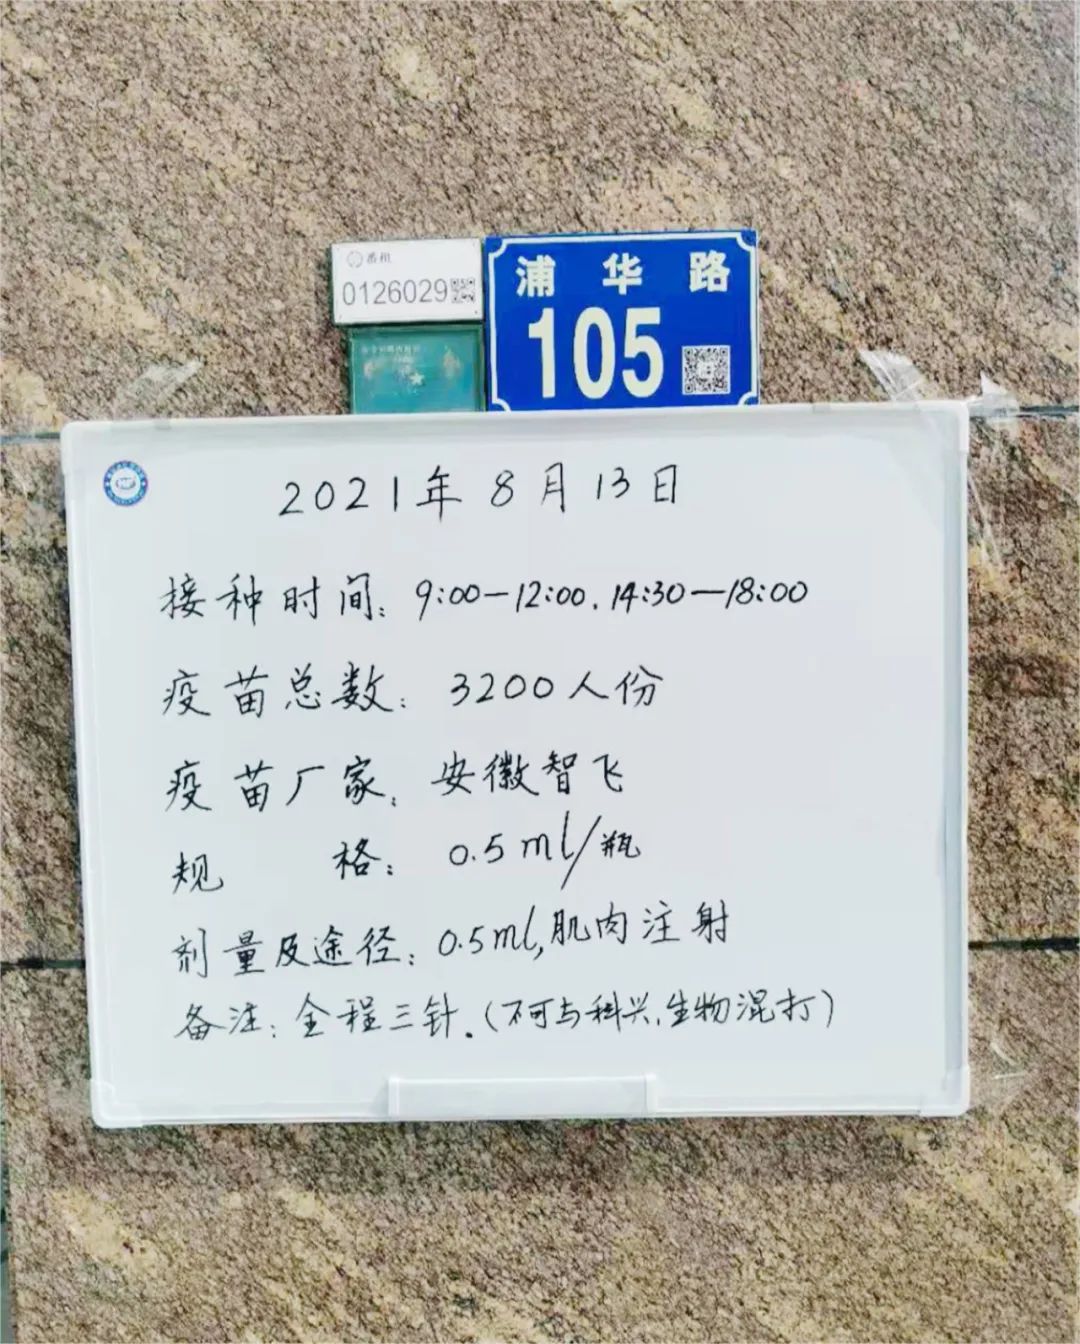 番租
0126029
浦华路
105
2021年8月13日
接种时间: 9:00-12:00. 14:30-18:00
疫苗总数: 3200人份
疫苗厂家: 安徽智飞
规 格: 0.5ml/瓶
剂量及途径: 0.5ml,肌肉注射
备注: 全程三针.(不可与科兴.生物混打)